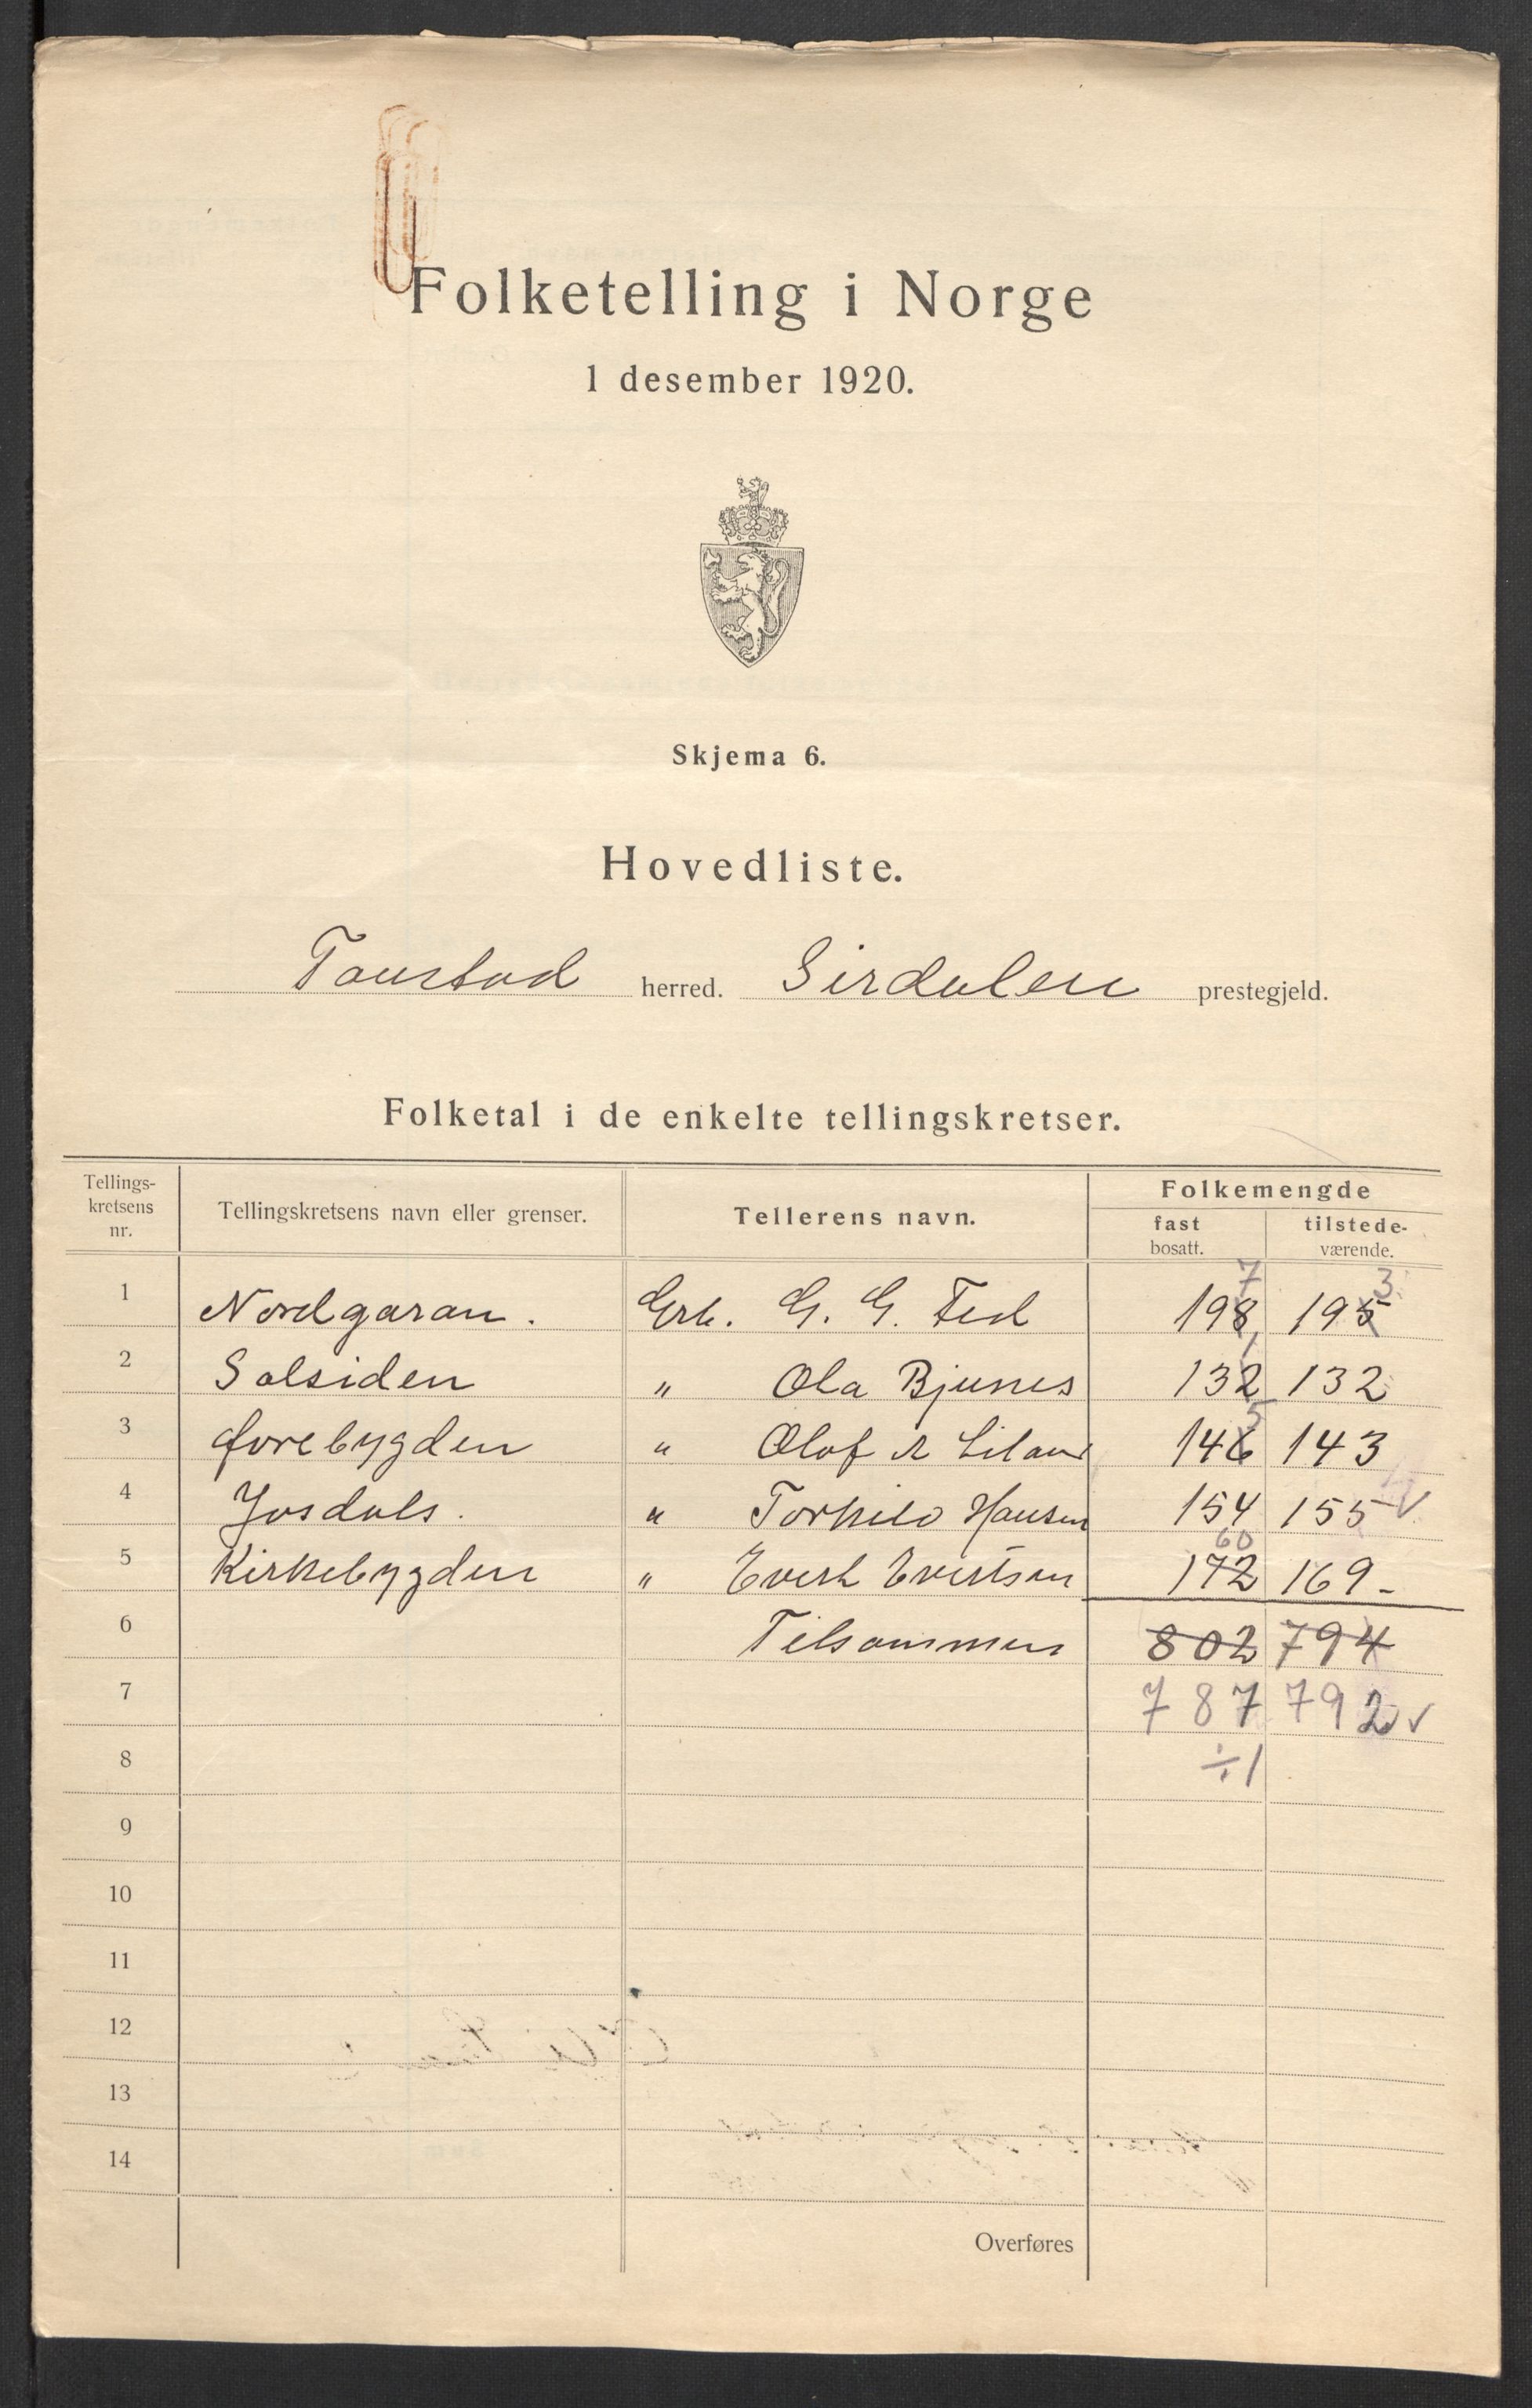 Folketelling i Norge
1 desember 1920.
Skjema 6.
Hovedliste.
Tonstad herred. Sirdalen prestegjeld.
Folketal i de enkelte tellingskretser.
Tellings-kretsens nr. Tellingskretsens navn eller grenser. Tellerens navn. Folkemengde
fast bosatt. tilstede-værende.
7 3
1 Nordgaran. Grb. G. G. Fed 198 195
1
2 Solsiden " Ola Bjunes 132 132
5
3 Førebygden " Olaf Liland 146 143
4 Josdals. " Torkild Hansen 154 155 ✓
60
5 Kirkebygden " Evert Evertsen 172 169 -
6 Tilsammen 802 794
7 787 792 ✓
8 ÷1
9
10
11
12
13
14
Overføres